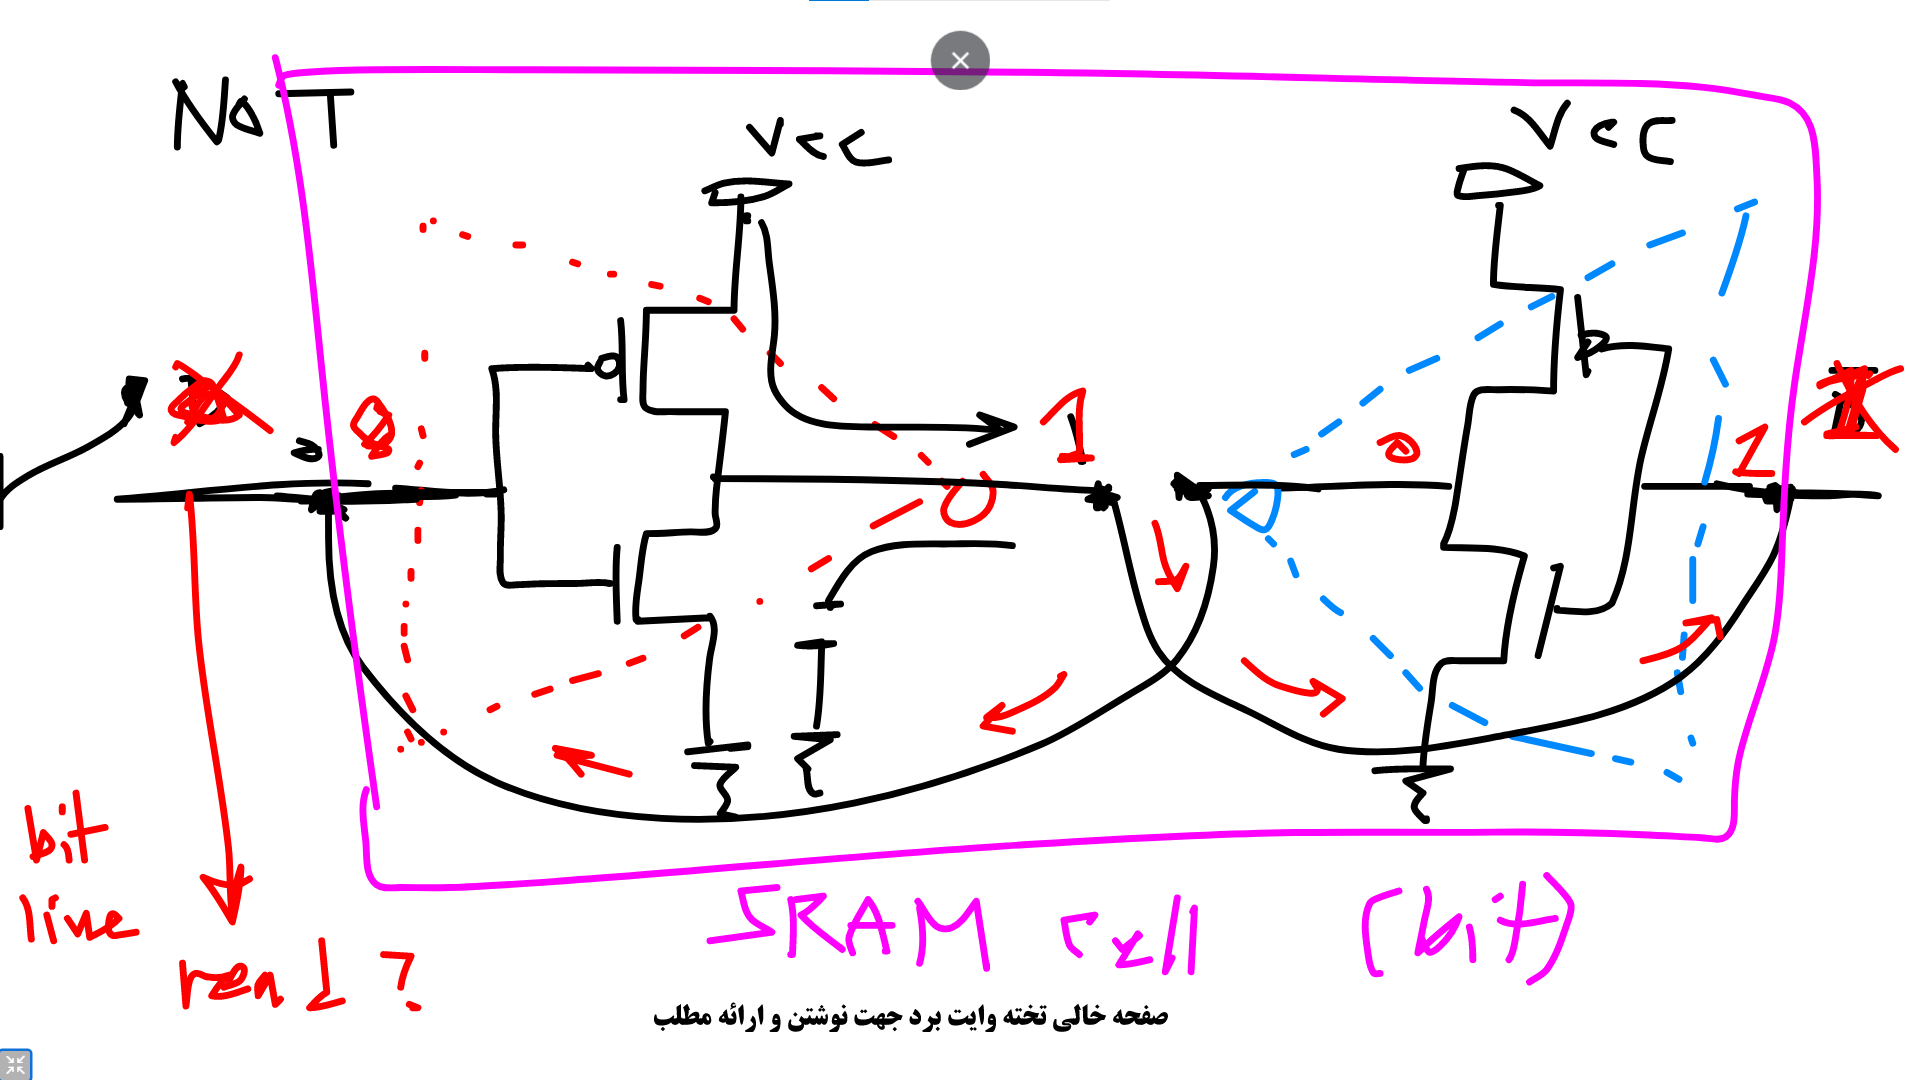 NOT
Vcc
Vcc
1
0
0
0
1
bit
line
read ?
SRAM cell (bit)
صفحه خالی تخته وایت برد جهت نوشتن و ارائه مطلب